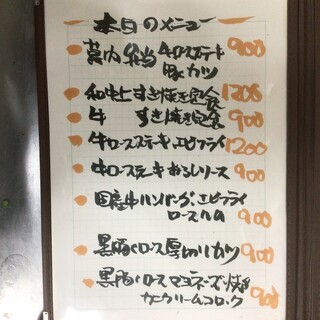 本日のメニュー
幕内弁当 牛ロースステーキ 900
豚カツ
和牛上すき焼き定食 1200
牛 すき焼き定食 900
牛ロースステーキ、エビフライ 1200
牛ロースステーキ おろしソース 900
国産牛ハンバーグ、エビフライ
ロースハム 900
黒豚ロース厚切りカツ 900
黒豚ロースマヨネーズ焼き
カニクリームコロッケ 900